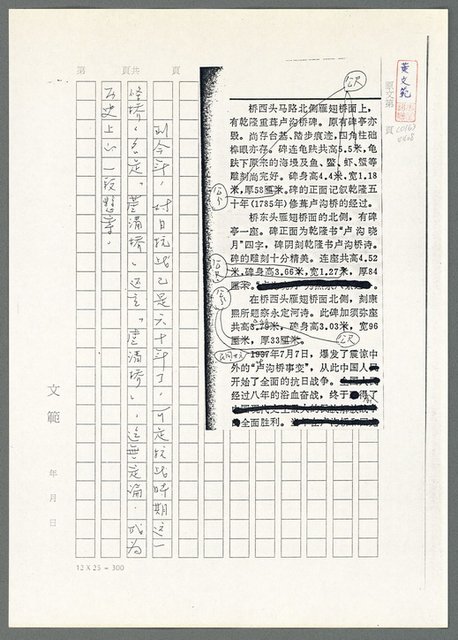 第 頁共 頁
原文第 頁
黃文範
公尺
桥西头马路北侧雁翅桥面上，
有乾隆重葺卢沟桥碑。原有碑亭亦
毁。尚存台基、踏步痕迹，四角柱础
榫眼亦存。碑连龟趺共高5.5米，龟
趺下原来的海墁及鱼、鳖、虾、蟹等
雕刻尚完好。碑身高4.4米，宽1.18
米，厚58厘米。碑的正面记叙乾隆五
十年（1785年）修葺卢沟桥的经过。
桥东头雁翅桥面的北侧，有碑
亭一座。碑正面为乾隆书“卢沟晓
月”四字，碑阴刻乾隆书卢沟桥诗。
碑的雕刻十分精美。连座共高4.52
米，碑身高3.66米，宽1.27米，厚84
厘米。
在桥西头雁翅桥面北侧，刻康
熙所题察永定河诗。此碑加须弥座
共高5.75米，碑身高3.03米，宽96
厘米，厚33厘米。
公尺
1937年7月7日，爆发了震惊中
外的“卢沟桥事变”，从此中国人
开始了全面的抗日战争。
经过八年的浴血奋战，终于 得了
全面胜利。
到今年，對日抗戰已是六十年了，可是抗戰時期這一
座橋，究竟是「蘆溝橋」還是「盧溝橋」，迄無定論，成為
历史上的一段懸案。
文範
年 月 日
12 X 25 = 300